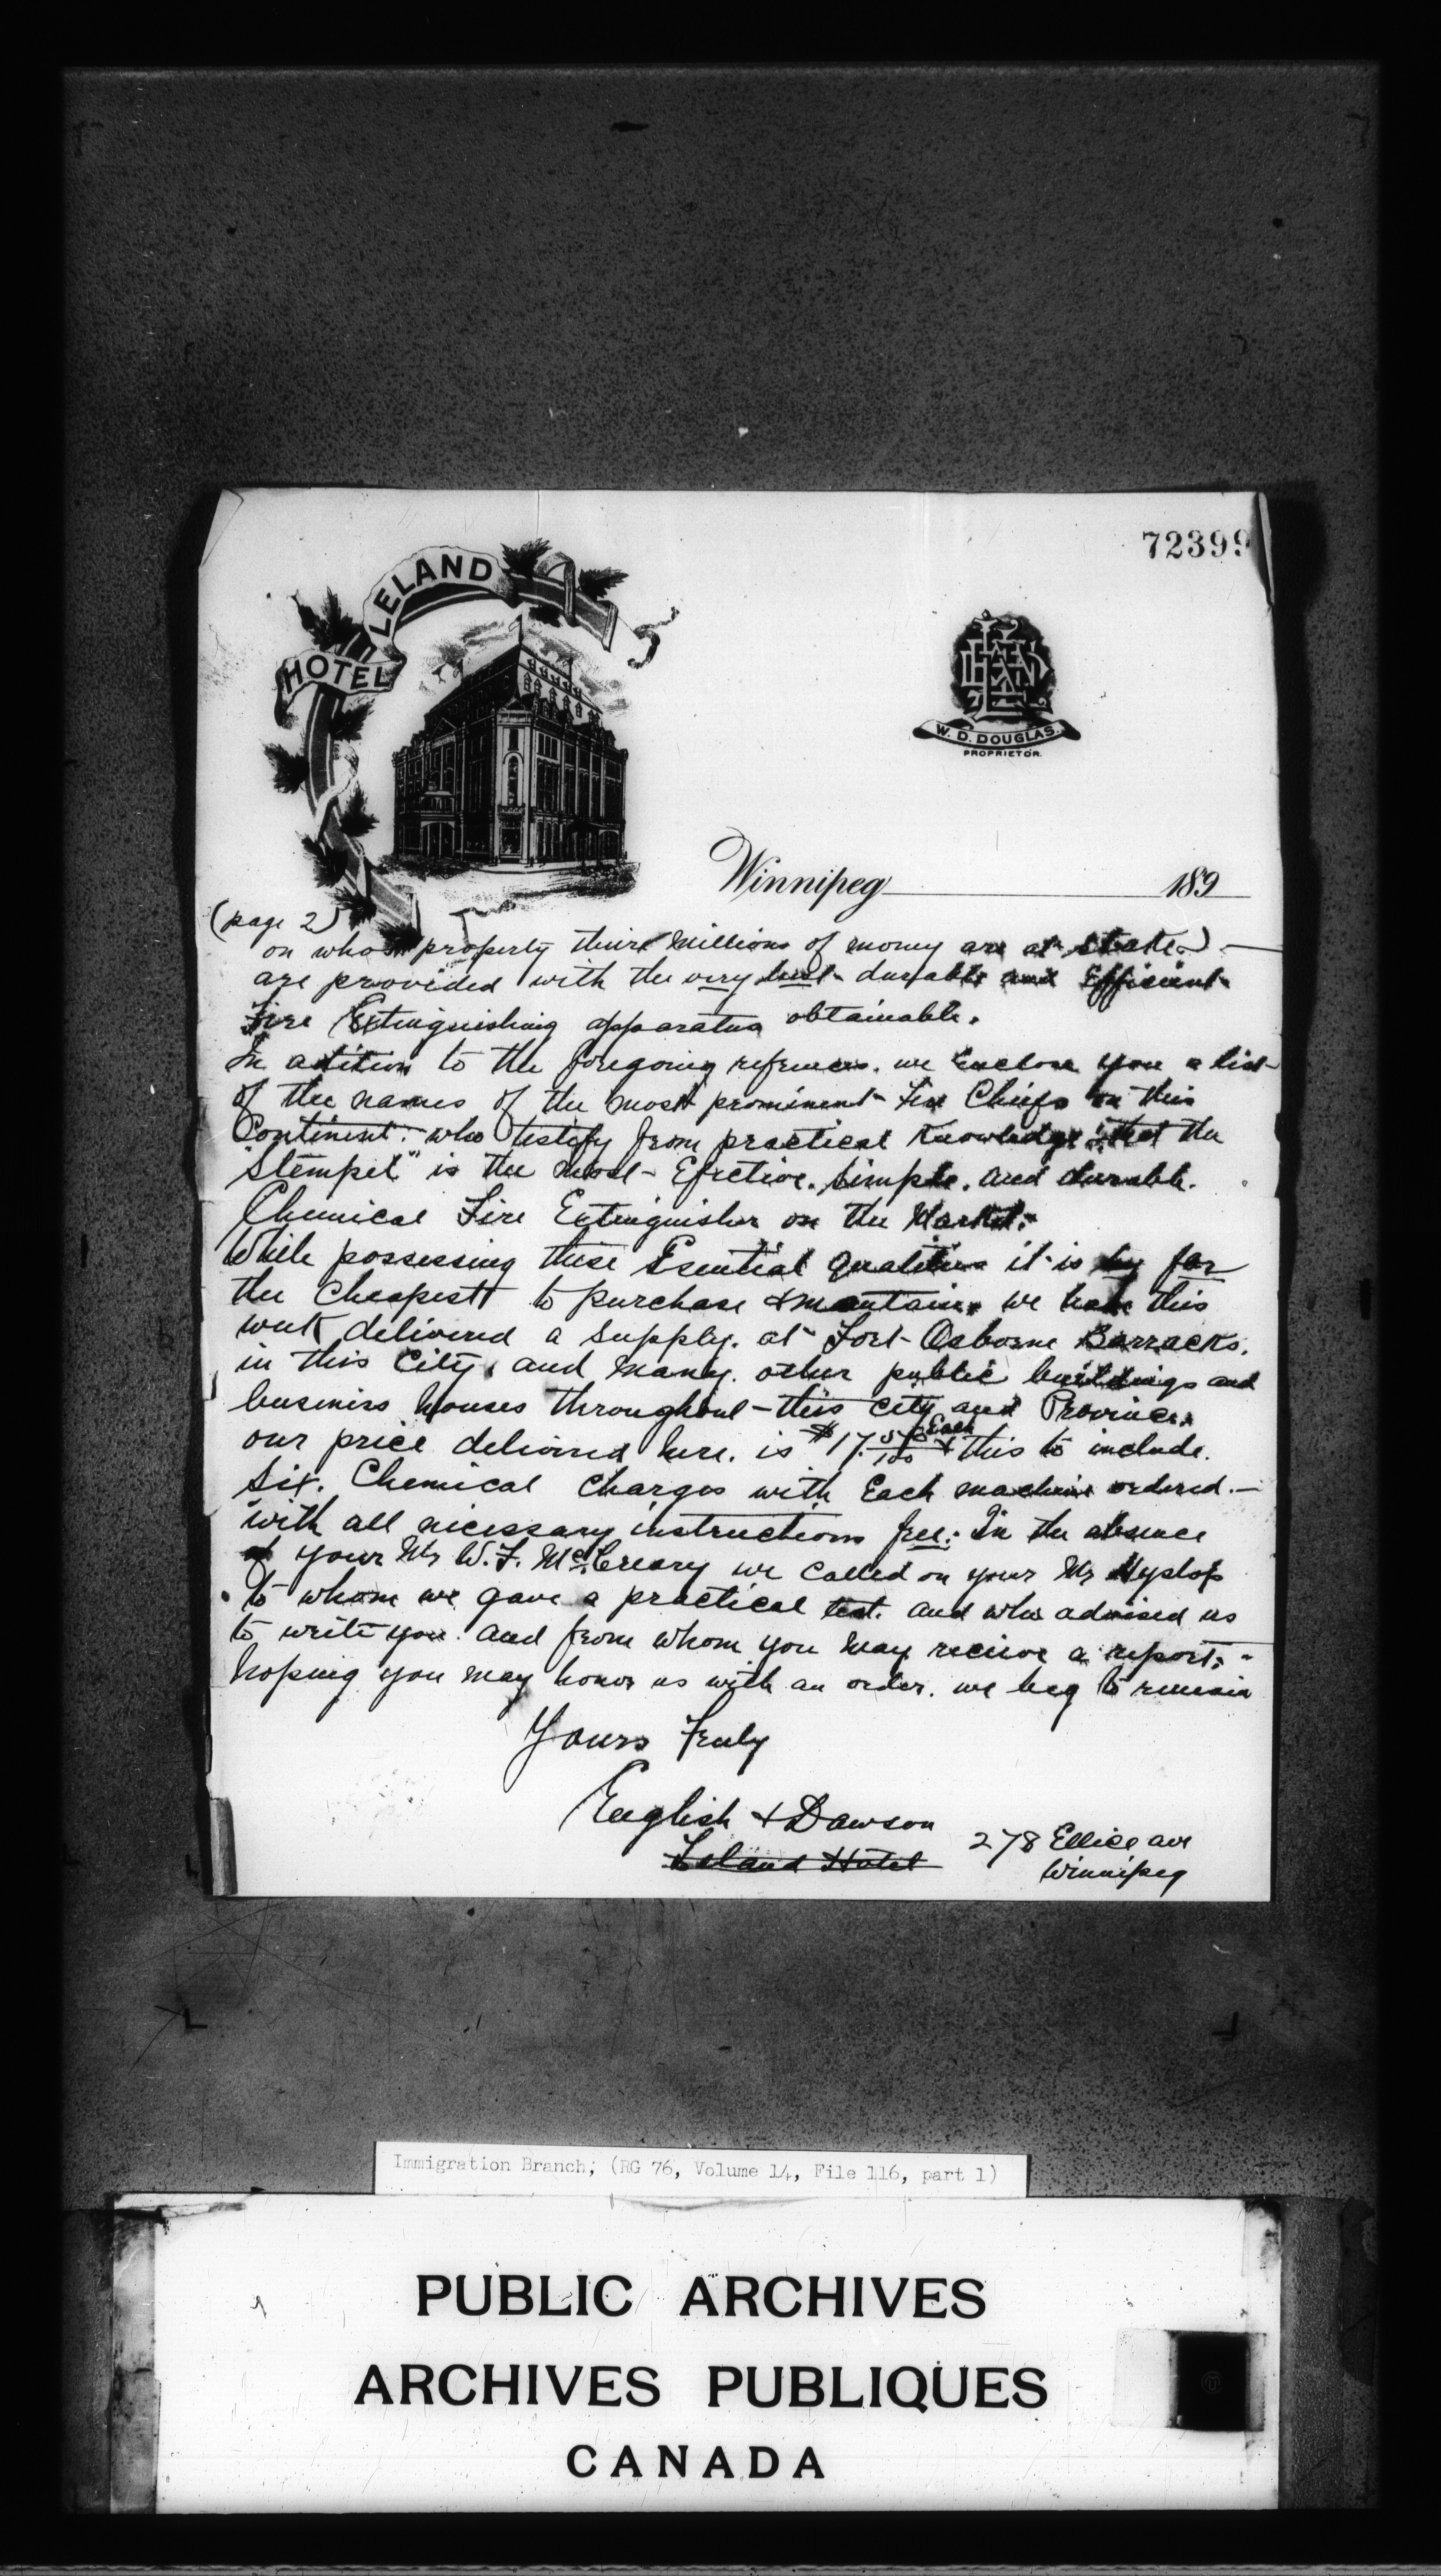 72399
LELAND
HOTEL
LELAND
W. D. DOUGLAS.
PROPRIETOR.
Winnipeg 189
(page 2)
on whose property their millions of money are at stake)
are provided with the very best durable and Efficient
Fire Extinguishing apparatus obtainable.
In adition to the foregoing refrences. we Enclose you a list
of the names of the most prominent Fire Chiefs on this
Continent. who testify from practical Knowledge that the
"Stempel" is the most Efective. simple. and durable.
Chemical Fire Extinguisher on the Market.
While possessing these Esential qualities it is by far
the Cheapest to purchase & maintain. we have this
week delivered a supply. at Fort Osborne Barracks.
in this City. and many. other public buildings and
business houses throughout this city and Province.
our price delivered here. is $17.50/100 Each & this to include.
Six. Chemical Charges with Each machine ordered.—
with all nicessary instructions free. In the absence
of your Mr W. F. McCreary we called on your Mr Hyslop
to whom we gave a practical test. and who advised us
to write you. and from whom you may recieve a report.
hoping you may honor us with an order. we beg to remain
Yours Truly
English & Dawson
Leland Hotel 278 Ellice ave
Winnipeg
Immigration Branch; (RG 76, Volume 14, File 116, part 1)
PUBLIC ARCHIVES
ARCHIVES PUBLIQUES
CANADA